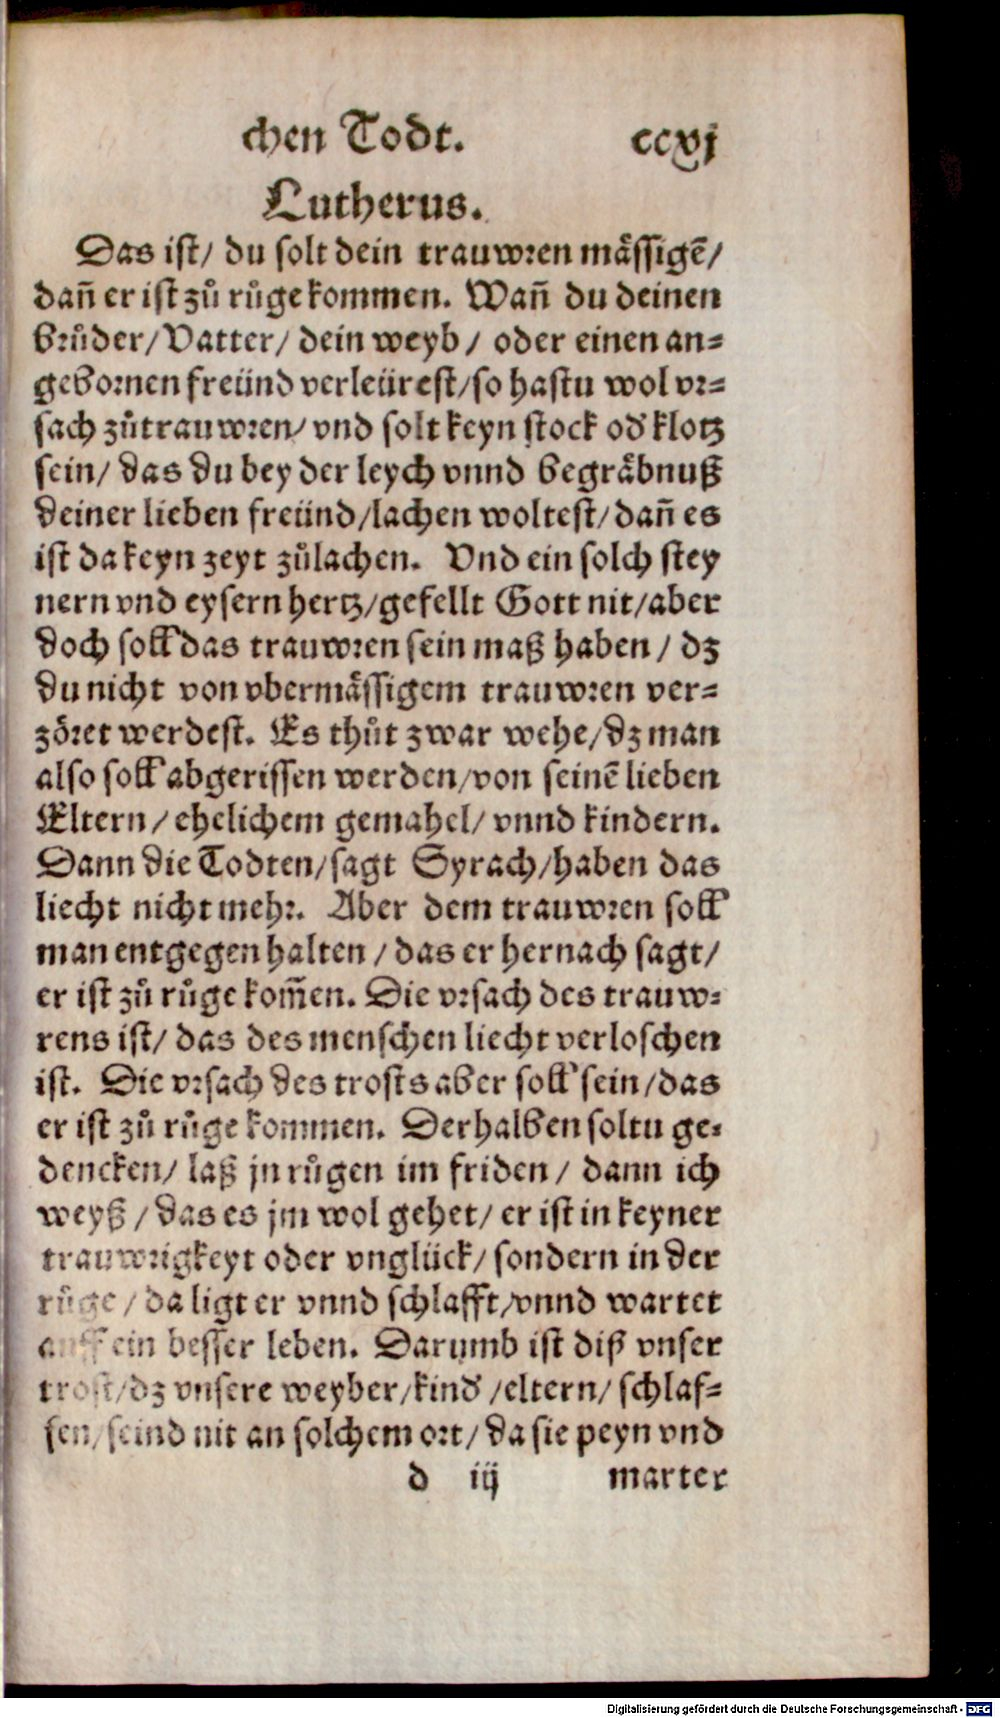 chen Todt. ccxvj
Lutherus.
Das ist/ du solt dein trauwren mässigẽ/
dañ er ist zů růge kommen. Wañ du deinen
brůder/Vatter/ dein weyb/ oder einen an⸗
gebornen freünd verleürest/so hastu wol vr⸗
sach zůtrauwren/ vnd solt keyn stock od' klotz
sein/ das du bey der leych vnnd begräbnuß
deiner lieben freünd/lachen woltest/dañ es
ist da keyn zeyt zůlachen. Vnd ein solch stey
nern vnd eysern hertz/gefellt Gott nit/aber
doch soll das trauwren sein maß haben/ dz
du nicht von vbermässigem trauwren ver⸗
zöret werdest. Es thůt zwar wehe/dz man
also soll abgerissen werden/von seinẽ lieben
Eltern/ ehelichem gemahel/ vnnd kindern.
Dann die Todten/sagt Syrach/haben das
liecht nicht mehr. Aber dem trauwren soll
man entgegen halten/ das er hernach sagt/
er ist zů růge kom̃en. Die vrsach des trauw⸗
rens ist/ das des menschen liecht verloschen
ist. Die vrsach des trosts aber soll sein/das
er ist zů růge kommen. Derhalben soltu ge⸗
dencken/ laß jn růgen im friden/ dann ich
weyß/ das es jm wol gehet/ er ist in keyner
trauwrigkeyt oder vnglück/ sondern in der
růge/ da ligt er vnnd schlafft/vnnd wartet
auff ein besser leben. Darumb ist diß vnser
trost/dz vnsere weyber/kind'/eltern/ schlaf⸗
fen/seind nit an solchem ort/ da sie peyn vnd
d iij marter
Digitalisierung gefördert durch die Deutsche Forschungsgemeinschaft - DFG